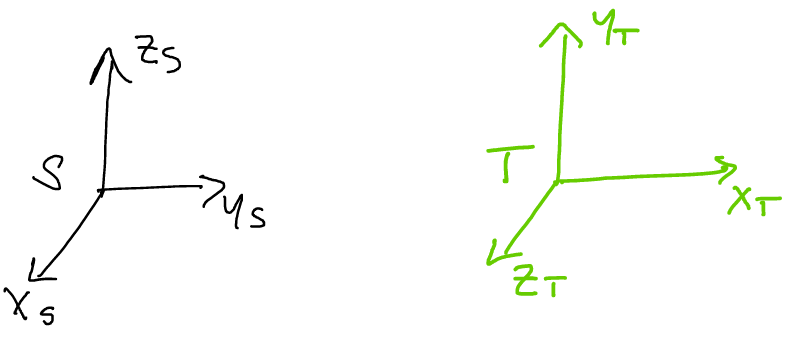 z_S
S
y_S
x_S
y_T
T
x_T
z_T